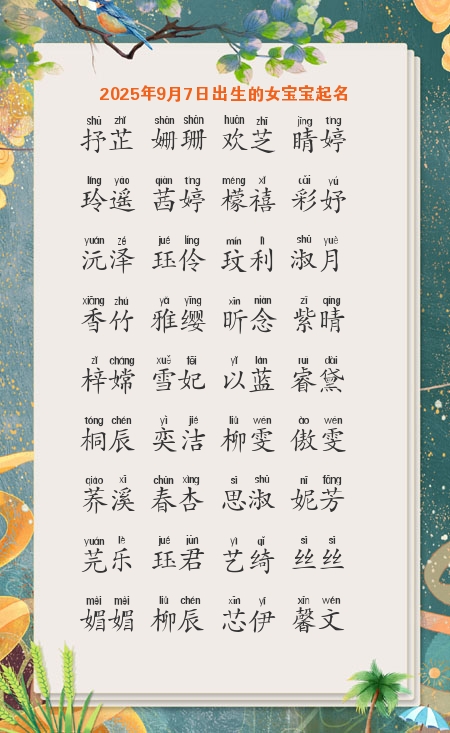 2025年9月7日出生的女宝宝起名
shū zhǐ shān shān huān zhī jīng tíng
抒芷 姗珊 欢芝 睛婷
líng yáo qiàn tíng méng xǐ cǎi yú
玲遥 茜婷 檬禧 彩妤
yuán zé jué líng mín lì shū yuè
沅泽 珏伶 玟利 淑月
xiāng zhú yǎ yīng xīn niàn zǐ qíng
香竹 雅缨 昕念 紫晴
zǐ cháng xuě fēi yǐ lán ruì dài
梓嫦 雪妃 以蓝 睿黛
tóng chén yì jié liǔ wén ào wén
桐辰 奕洁 柳雯 傲雯
qiáo xī chūn xìng sī shū nī fāng
荞溪 春杏 思淑 妮芳
yuán lè jué jūn yì qǐ sī sī
芫乐 珏君 艺绮 丝丝
mèi mèi liǔ chén xīn yī xīn wén
媚媚 柳辰 芯伊 馨文